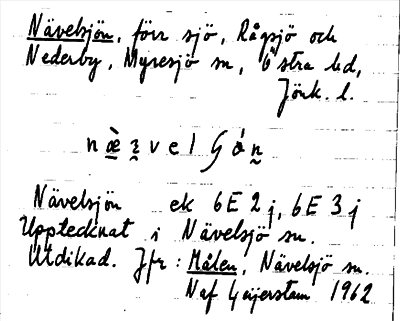 Nävelsjön, förr sjö, Rågsjö och
Nederby, Myresjö sn, Östra hd,
Jönk. l.
Nävelsjön ek 6E 2j, 6E 3j
Upptecknat i Nävelsjö sn.
Utdikad. Jfr: Målen, Nävelsjö sn.
Naf Geijerstam 1962